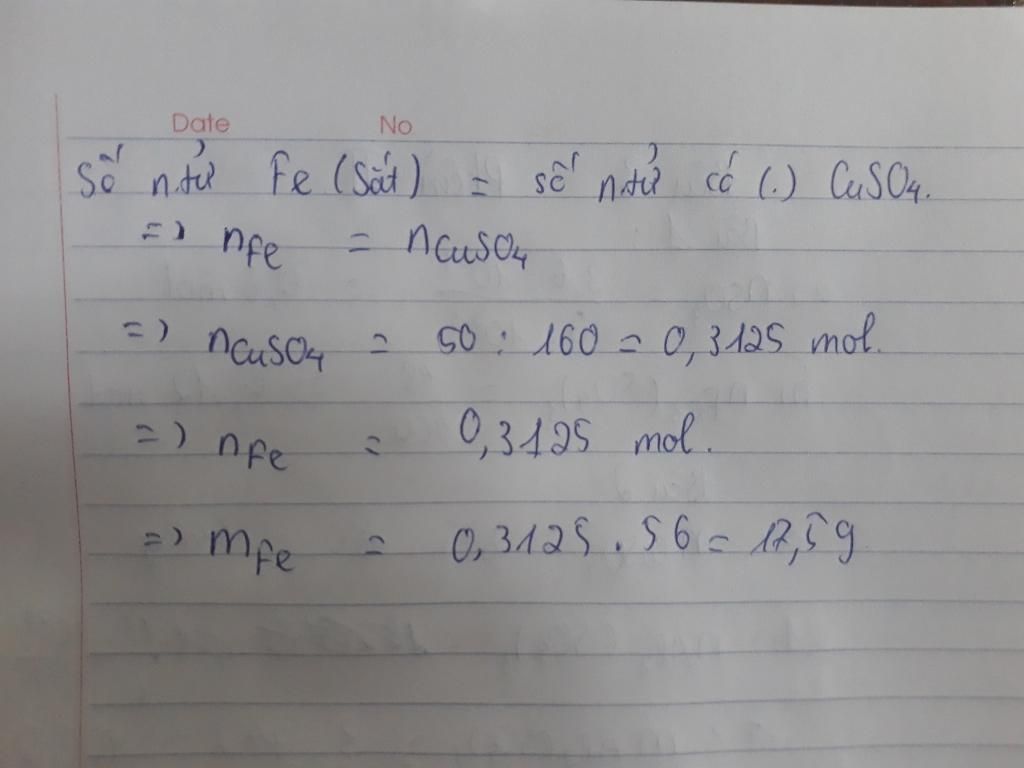 Date No
Số n.tử Fe (Sắt) = số n.tử có (.) CuSO4.
=> nFe = nCuSO4
=> nCuSO4 = 50 : 160 = 0,3125 mol.
=> nFe = 0,3125 mol.
=> mFe = 0,3125 . 56 = 17,5g